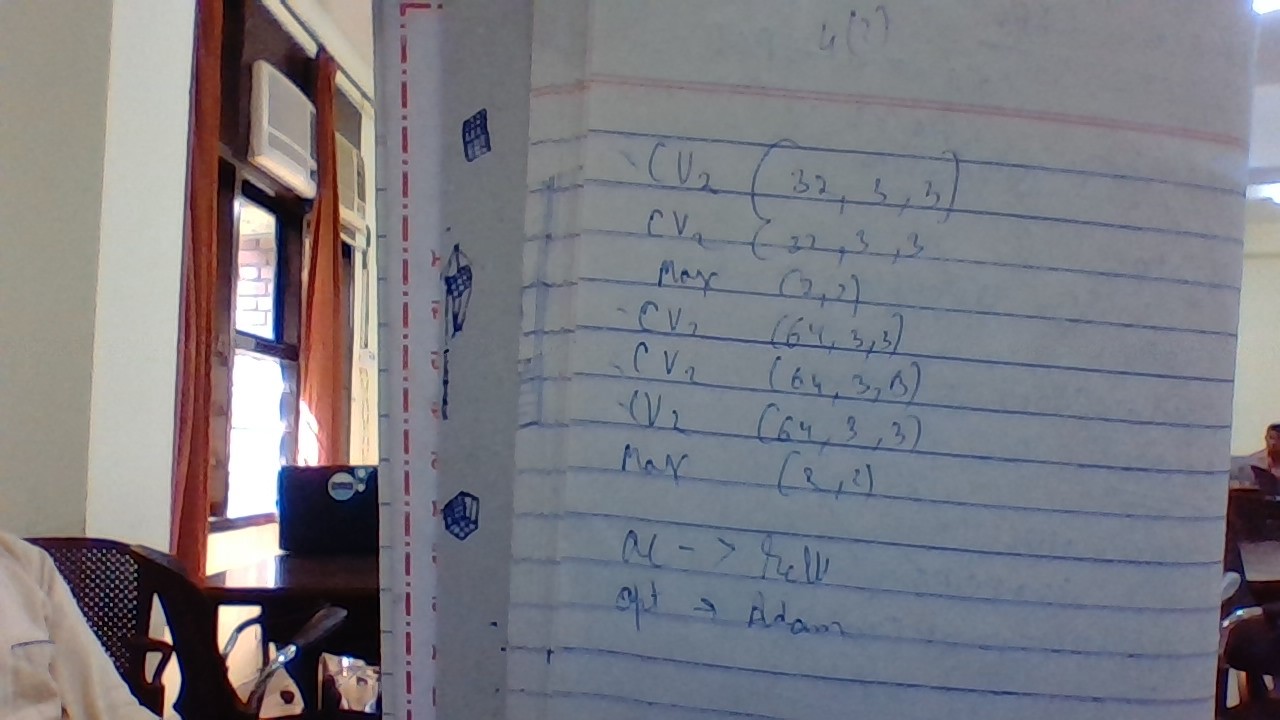 CV2 (32, 3, 3)
CV2 (32, 3, 3
Max (2,2)
CV2 (64, 3,3)
CV2 (64, 3,3)
CV2 (64, 3,3)
Max (2,2)
-> relu
opt → Adam